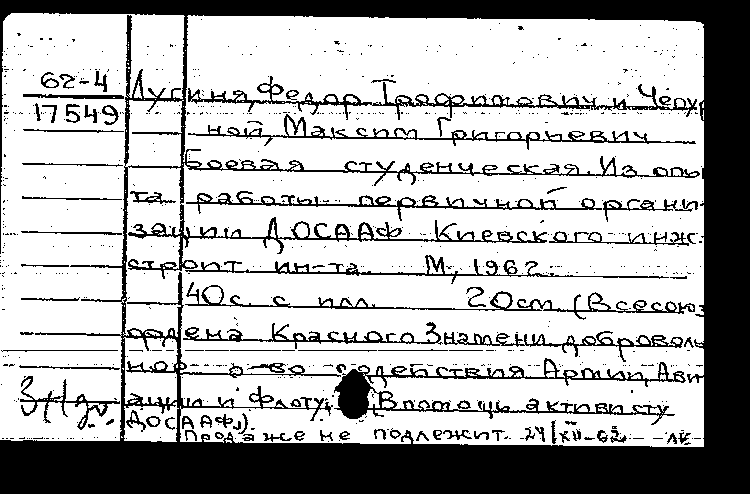 62-4
17549
Лугиня, Федор Трофимович и Чепур
ной, Максим Григорьевич
Боевая студенческая. Из опы
та работы первичной органи-
зации ДОСААФ Киевского инж.
строит. ин-та. М., 1962
40с. с илл. 20см. (Всесоюз
ордена Красного Знамени доброволь
ное о-во содействия Армии, Ави
ации и Флоту. В помощь активисту
ДОСААФ).
Продаже не подлежит. 24/XII-62